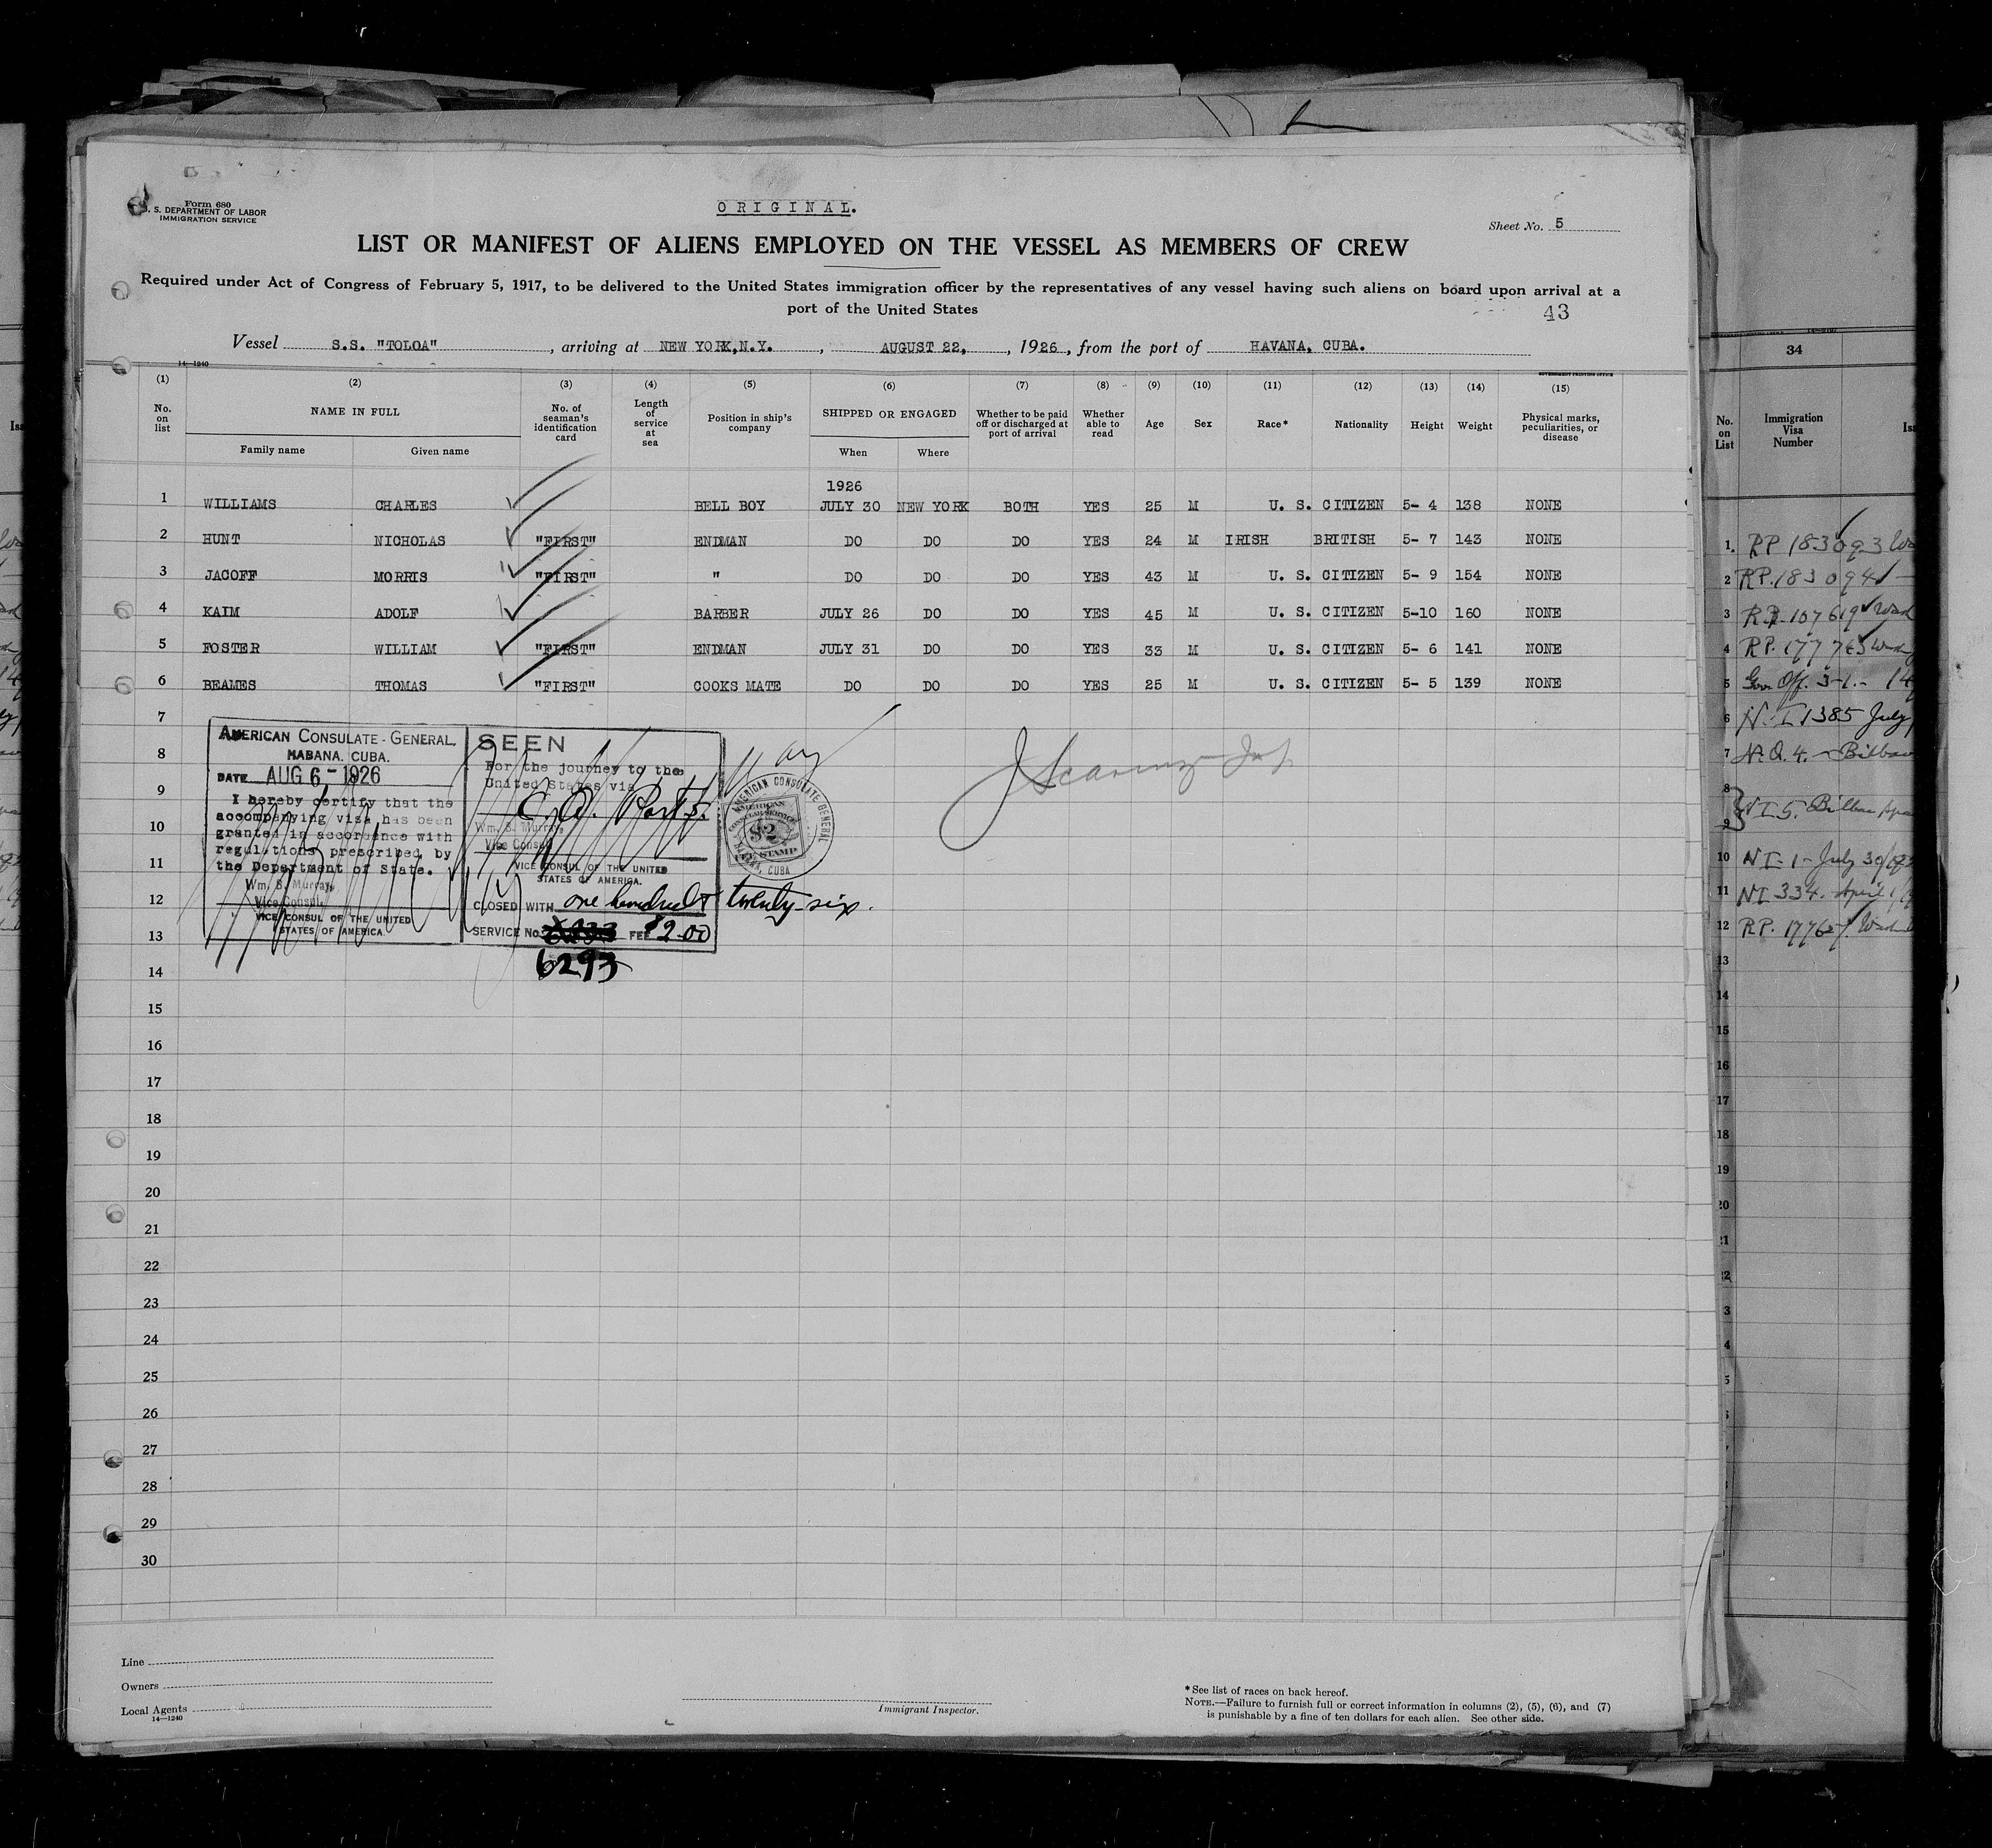 Form 680
U. S. DEPARTMENT OF LABOR
IMMIGRATION SERVICE
ORIGINAL.
Sheet No. 5
LIST OR MANIFEST OF ALIENS EMPLOYED ON THE VESSEL AS MEMBERS OF CREW
Required under Act of Congress of February 5, 1917, to be delivered to the United States immigration officer by the representatives of any vessel having such aliens on board upon arrival at a
port of the United States
43
Vessel S.S. "TOLOA", arriving at NEW YORK,N.Y., AUGUST 22, 1926, from the port of HAVANA, CUBA.
14-1240
GOVERNMENT PRINTING OFFICE
(1) (2) (3) (4) (5) (6) (7) (8) (9) (10) (11) (12) (13) (14) (15)
No. on list NAME IN FULL No. of seaman's identification card Length of service at sea Position in ship's company SHIPPED OR ENGAGED Whether to be paid off or discharged at port of arrival Whether able to read Age Sex Race* Nationality Height Weight Physical marks, peculiarities, or disease
Family name Given name When Where
1926
1 WILLIAMS CHARLES BELL BOY JULY 30 NEW YORK BOTH YES 25 M U. S. CITIZEN 5- 4 138 NONE
2 HUNT NICHOLAS "FIRST" ENDMAN DO DO DO YES 24 M IRISH BRITISH 5- 7 143 NONE
3 JACOFF MORRIS "FIRST" " DO DO DO YES 43 M U. S. CITIZEN 5- 9 154 NONE
4 KAIM ADOLF BARBER JULY 26 DO DO YES 45 M U. S. CITIZEN 5-10 160 NONE
5 FOSTER WILLIAM "FIRST" ENDMAN JULY 31 DO DO YES 33 M U. S. CITIZEN 5- 6 141 NONE
6 BEAMES THOMAS "FIRST" COOKS MATE DO DO DO YES 25 M U. S. CITIZEN 5- 5 139 NONE
7
8
9
10
11
12
13
14
15
16
17
18
19
20
21
22
23
24
25
26
27
28
29
30
AMERICAN CONSULATE-GENERAL
HABANA. CUBA.
DATE AUG 6 - 1926
I hereby certify that the
accompanying visa has been
granted in accordance with
regulations prescribed by
the Department of State.
Wm. B. Murray,
Vice Consul,
VICE CONSUL OF THE UNITED
STATES OF AMERICA
SEEN
For the journey to the
United States via
Ports.
Wm. B. Murray,
Vice Consul
VICE CONSUL OF THE UNITED
STATES OF AMERICA.
CLOSED WITH one hundred & twenty-six.
SERVICE No. FEE $2.00
6293
AMERICAN CONSULATE GENERAL
AMERICAN
CONSULAR SERVICE
$2
FEE STAMP
HABANA, CUBA
Line
Owners
Local Agents
14-1240
Immigrant Inspector.
*See list of races on back hereof.
NOTE.—Failure to furnish full or correct information in columns (2), (5), (6), and (7)
is punishable by a fine of ten dollars for each alien. See other side.
34
No. on List Immigration Visa Number
1. RP 183093
2 RP. 183094
3 RP. 107619 Wash
4 RP. 177763
5 Gov. Off. 3-1.-
6 N.I 1385 July
7 N.Q. 4. - Bilbao
8
9 NI 5. Bilbao
10 NI-1- July 30
11 NI 334. April
12 RP. 17762
13
14
15
16
17
18
19
20